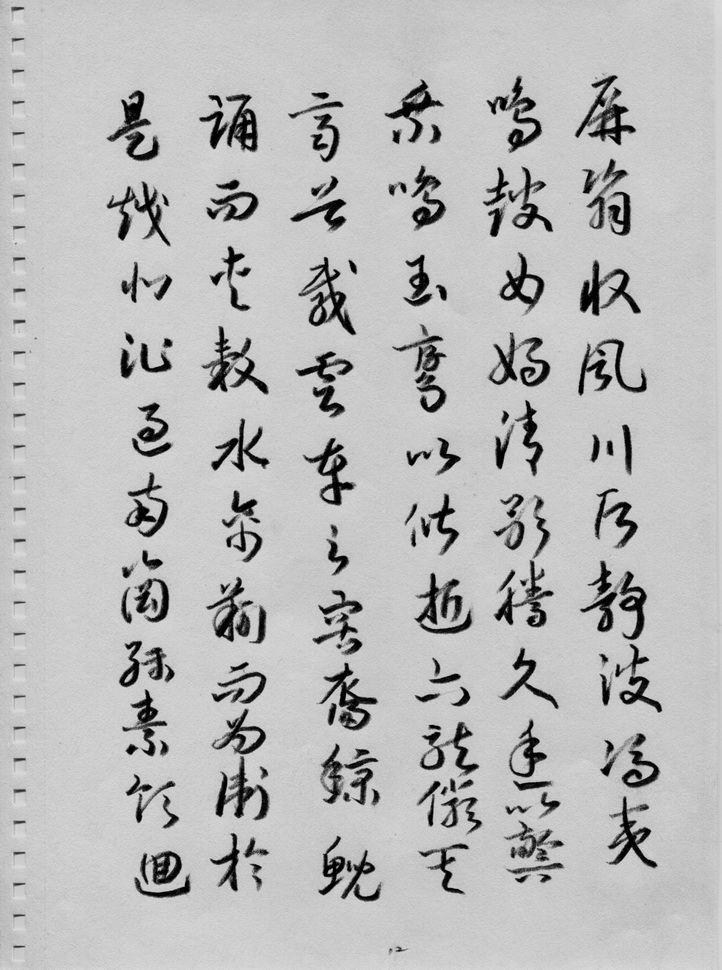 屏翳收風川后静波馮夷
鳴鼓女媧清歌騰文魚以警
乘鳴玉鸞以偕逝六龍儼其
齊首載雲車之容裔鯨鯢
踊而夾轂水禽翔而為衛於
是越北沚過南岡紆素領迴
12